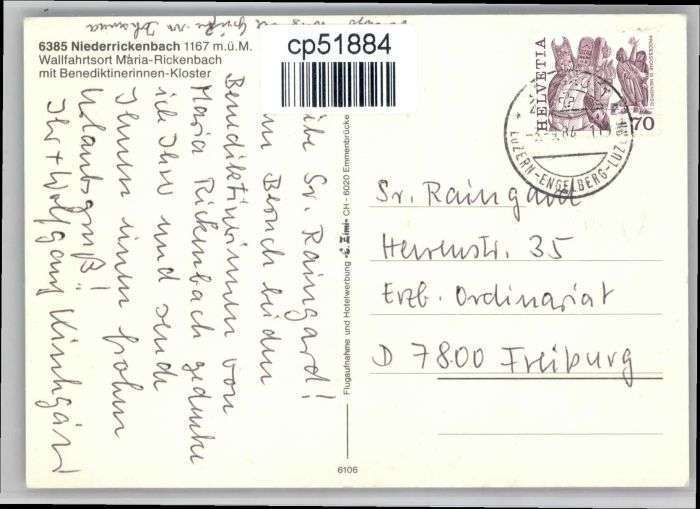 6385 Niederrickenbach 1167 m.ü.M.
Wallfahrtsort Maria-Rickenbach
mit Benediktinerinnen-Kloster
cp51884
HELVETIA
70
LUZERN-ENGELBERG-LUZ
Sr. Raingard!
Besuch bei den
Benediktinerinnen von
Maria Rickenbach gedenke
ich Ihrer und sende
Ihnen einen frohen
Urlaubsgruß!
Ihr Wolfgang Kirchgäss
Grüße von Johanna
Flugaufnahme und Hotelwerbung CH - 6020 Emmenbrücke
6106
Sr. Raingard
Herrenstr. 35
Erzb. Ordinariat
D 7800 Freiburg